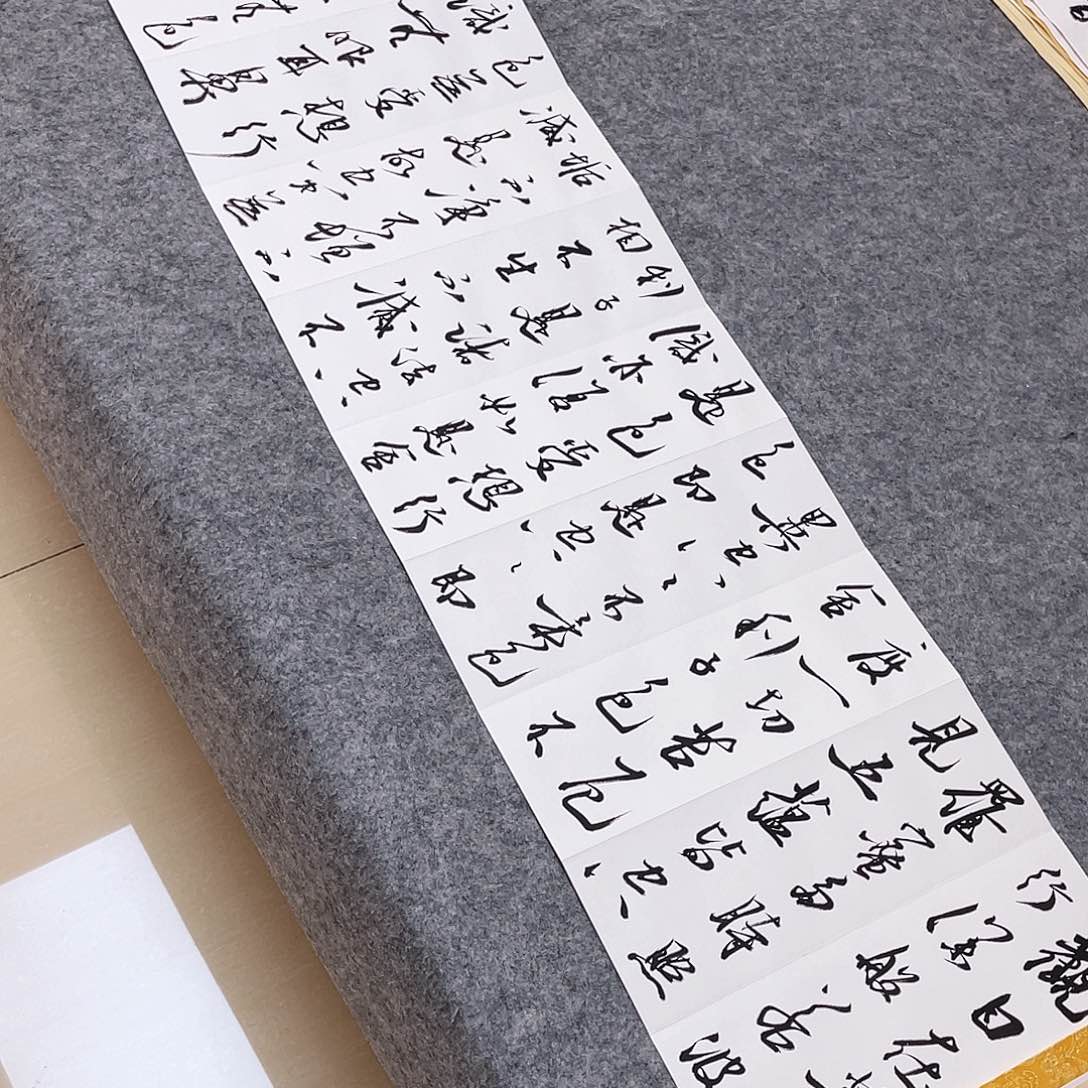 觀自在
行深般若波
羅蜜多時照
見五蘊皆空
度一切苦厄
舍利子色不
異空空不異色
色即是空空即
是色受想行
識亦復如是舍
利子是諸法空
相不生不滅不
垢不淨不增不
減是故空中無
色無受想行
識無眼耳鼻
色